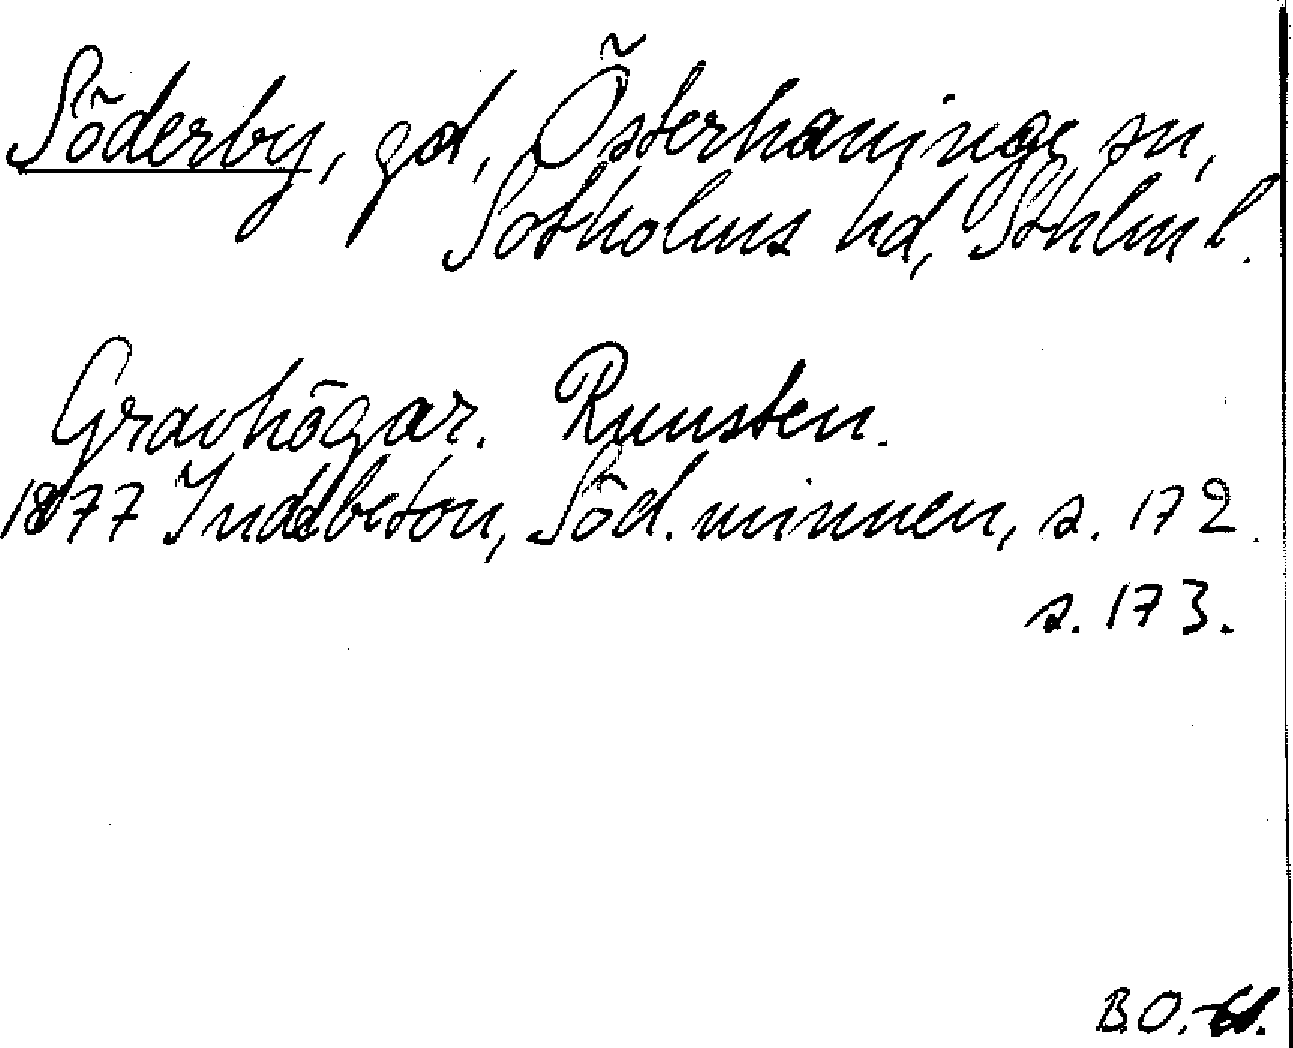 Söderby, gd, Österhaninge sn,
Sotholms hd, Sthlm l.
Gravhögar. Runsten.
1877 Indebetou, Söd. minnen, s. 172.
s. 173.
B.O.-61.